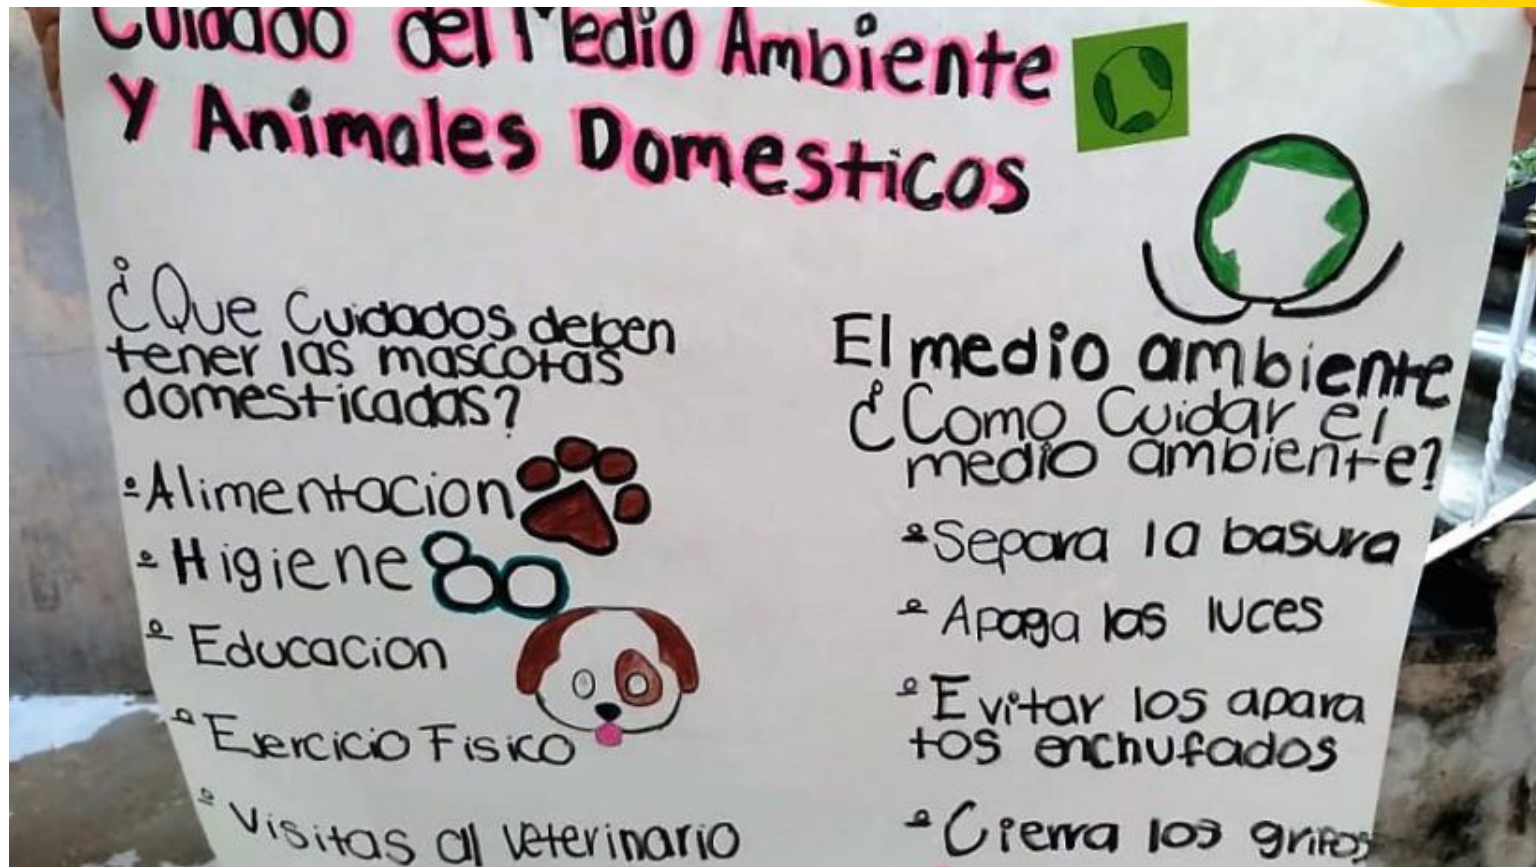 Cuidado del Medio Ambiente
Y Animales Domesticos
¿Que Cuidados deben
tener las mascotas
domesticadas?
Alimentacion
Higiene
Educacion
Ejercicio Fisico
Visitas al veterinario
El medio ambiente
¿Como Cuidar el
medio ambiente?
Separa la basura
Apaga las luces
Evitar los apara
tos enchufados
Cierra los grifos